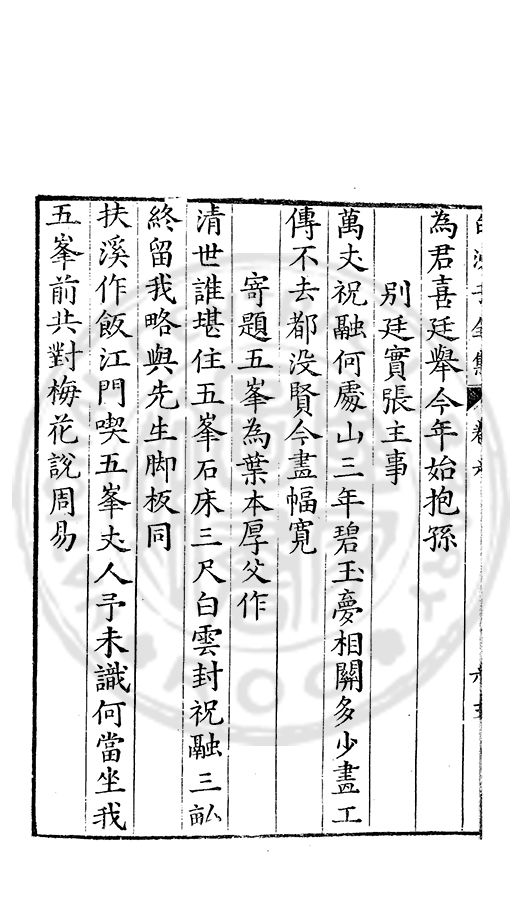 為君喜廷舉今年始抱孫
别廷實張主事
萬丈祝融何處山三年碧玉夢相關多少畫工
傳不去都没賢今畫幅寬
寄題五峯為葉本厚父作
清世誰堪住五峯石床三尺白雲封祝融三畝
終留我略與先生脚板同
扶溪作飯江門喫五峯丈人予未識何當坐我
五峯前共對梅花說周易